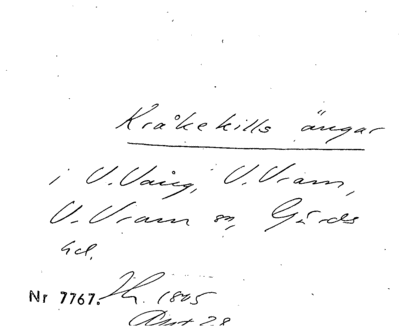 Kråkekills ängar
i V. Vång, V. Vram,
V. Vram sn, Gärds
hd.
Nr 7767. Jh. 1805